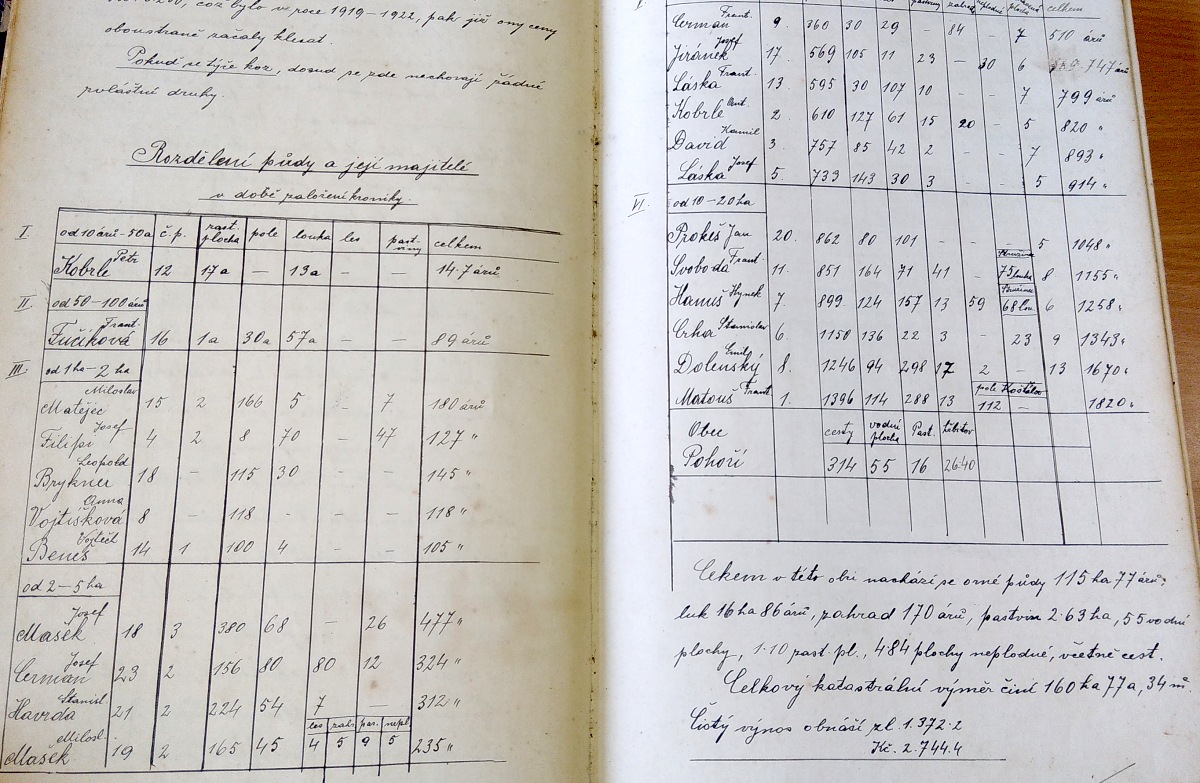 což bylo v roce 1919–1922, pak již ony ceny
oboustraně začaly klesat.
Pokud se týče koz, dosud se zde nechovají žádné
zvláštní druhy.
Rozdělení půdy a její majitelé
v době založení kroniky.
I. od 10 árů - 50a č.p. zast. plocha pole louka les pastviny celkem
Kobrle Petr 12 17a — 13a — — 14·7 árů
II. od 50–100 árů
Fučíková Frant. 16 1a 30a 57a — — 89 árů
III. od 1 ha – 2 ha
Matějec Miloslav 15 2 166 5 — 7 180 árů
Filipi Josef 4 2 8 70 — 47 127 "
Brykner Leopold 18 — 115 30 145 "
Vojtíšková Anna 8 — 118 - — — 118 "
Beneš Vojtěch 14 1 100 4 — — 105 "
od 2–5 ha
Mašek Jozef 18 3 380 68 26 477 "
Cerman Josef 23 2 156 80 80 12 324 "
Havrda Stanisl 21 2 224 54 7 — 312 "
les zah. pas. nepl
Mašek Milosl. 19 2 165 45 4 5 9 5 235 "
celkem
Cerman Frant. 9. 360 30 29 — 84 — 7 510 árů
Jiránek Jozef 17 569 105 11 23 — 30 6 747 árů
Láska Frant. 13. 595 30 107 10 — 7 799 árů
Kobrle Ant. 2. 610 127 61 15 20 — 5 820 "
David Kamil 3. 757 85 42 2 — 7 893 "
Láska Josef 5. 733 143 30 3 — — 5 914 "
VI. od 10–20 ha
Prokeš Jan 20. 862 80 101 — — — 5 1048 "
Svoboda Frant 11. 851 164 71 41 — 75 louka 8 1155 "
Hanuš Hynek 7. 899 124 157 13 59 68 lou. 6 1258 "
Crha Stanislav 6. 1150 136 22 3 — 23 9 1343 "
Dolenský Emil 8. 1246 94 298 17 2 — 13 1670 "
pole Koštálov
Matouš Frant 1. 1396 114 288 13 112 — 1820 "
Obec cesty vodní plocha Past.
Pohoří 314 55 16 26·40
Cekem v této obci nachází se orné půdy 115 ha 77 árů,
luk 16 ha 86 árů, zahrad 170 árů, pastvin 2·63 ha, 55 vodní
plochy, 1·10 zast. pl., 484 plochy neplodné, včetně cest.
Celkový katastrální výměr činí 160 ha 77a, 34 m
Čistý výnos obnáší zl. 1.372·2
Kč. 2.744.4